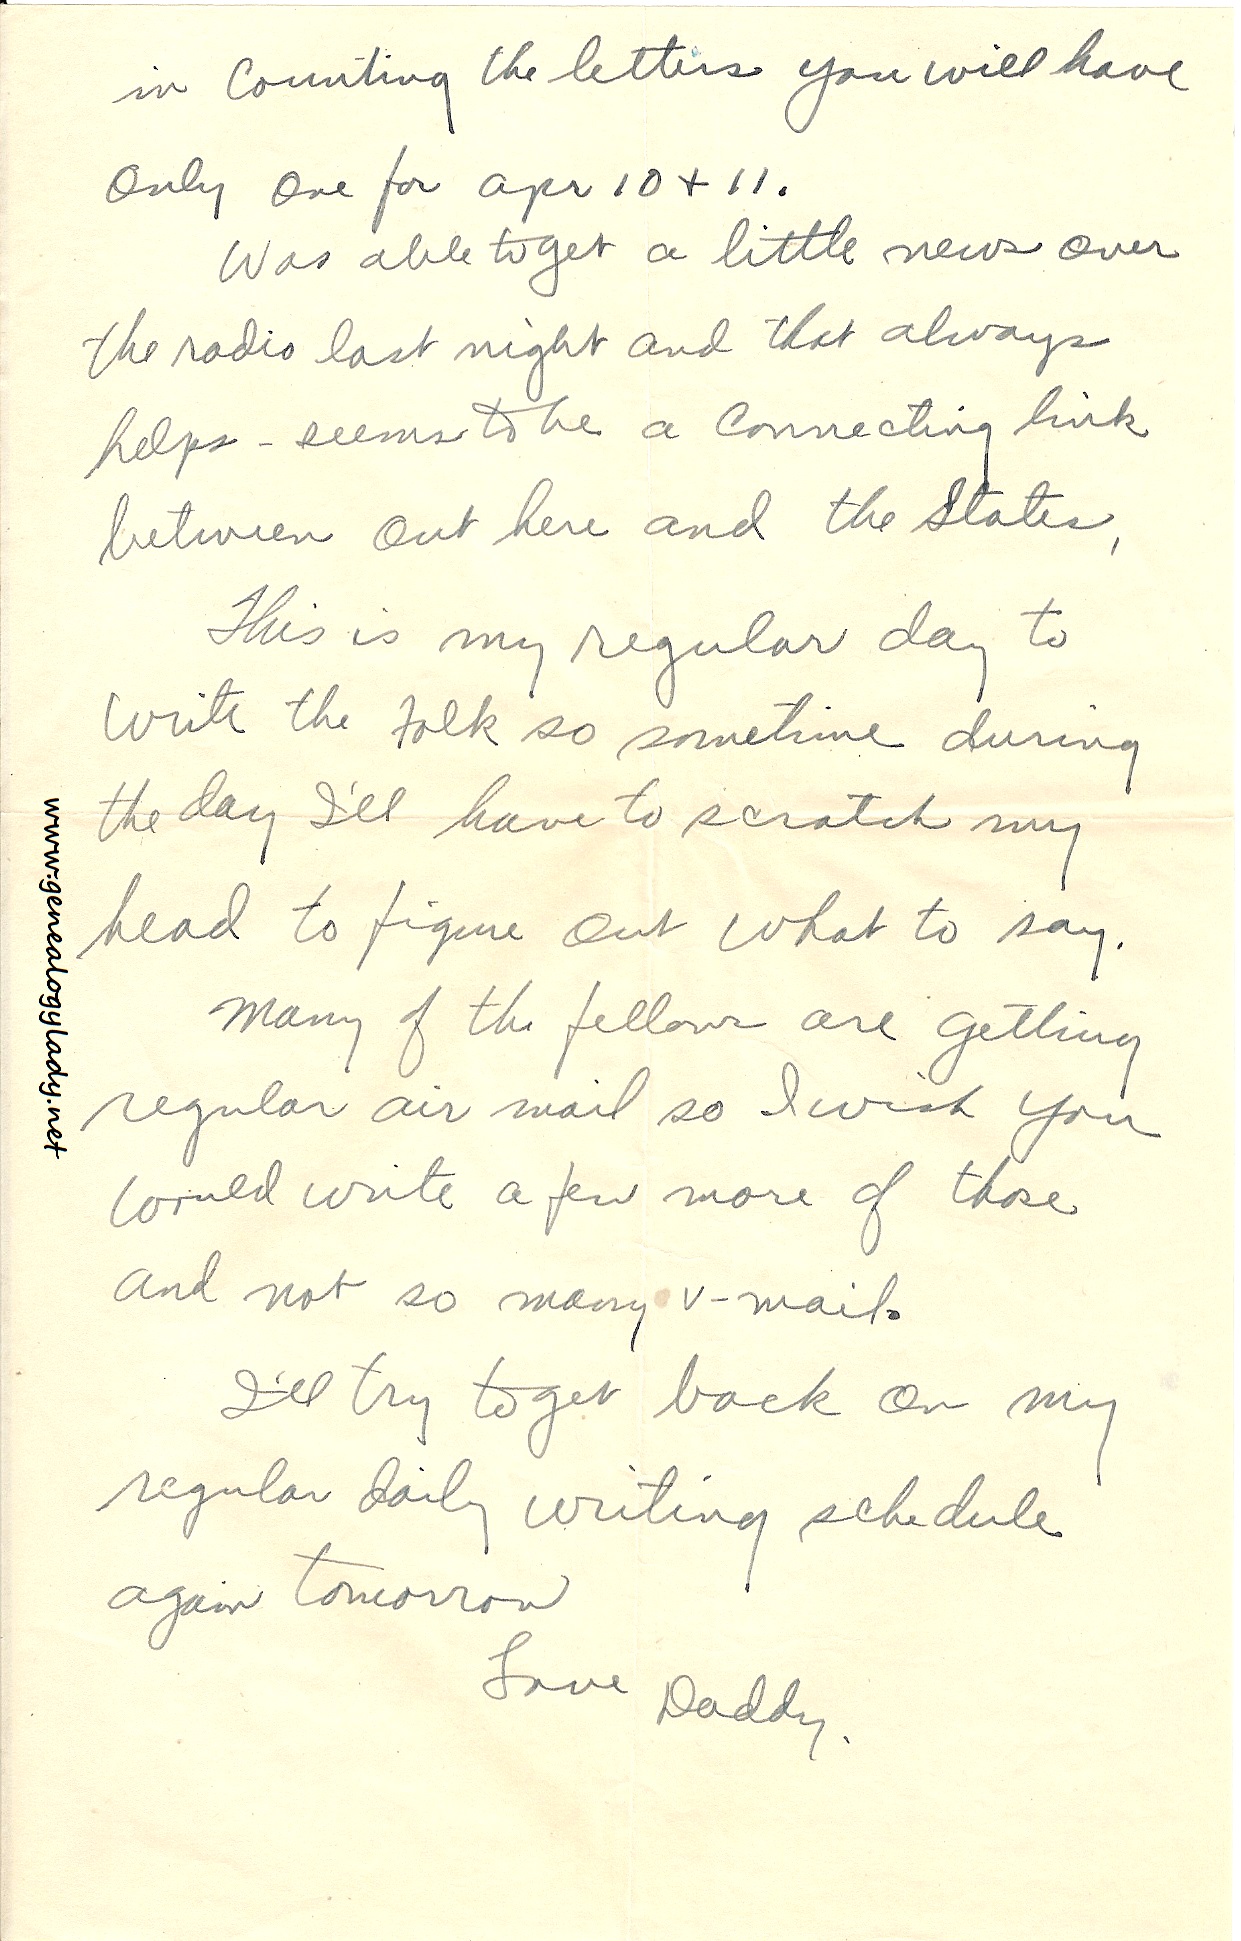 in counting the letters you will have
only one for apr 10 + 11.
Was able to get a little news over
the radio last night and that always
helps - seems to be a connecting link
between out here and the States,
This is my regular day to
write the folk so sometime during
the day I'll have to scratch my
head to figure out what to say.
Many of the fellows are getting
regular air mail so I wish you
would write a few more of those
and not so many v-mail.
I'll try to get back on my
regular daily writing schedule
again tomorrow
Love Daddy.
www.genealogylady.net